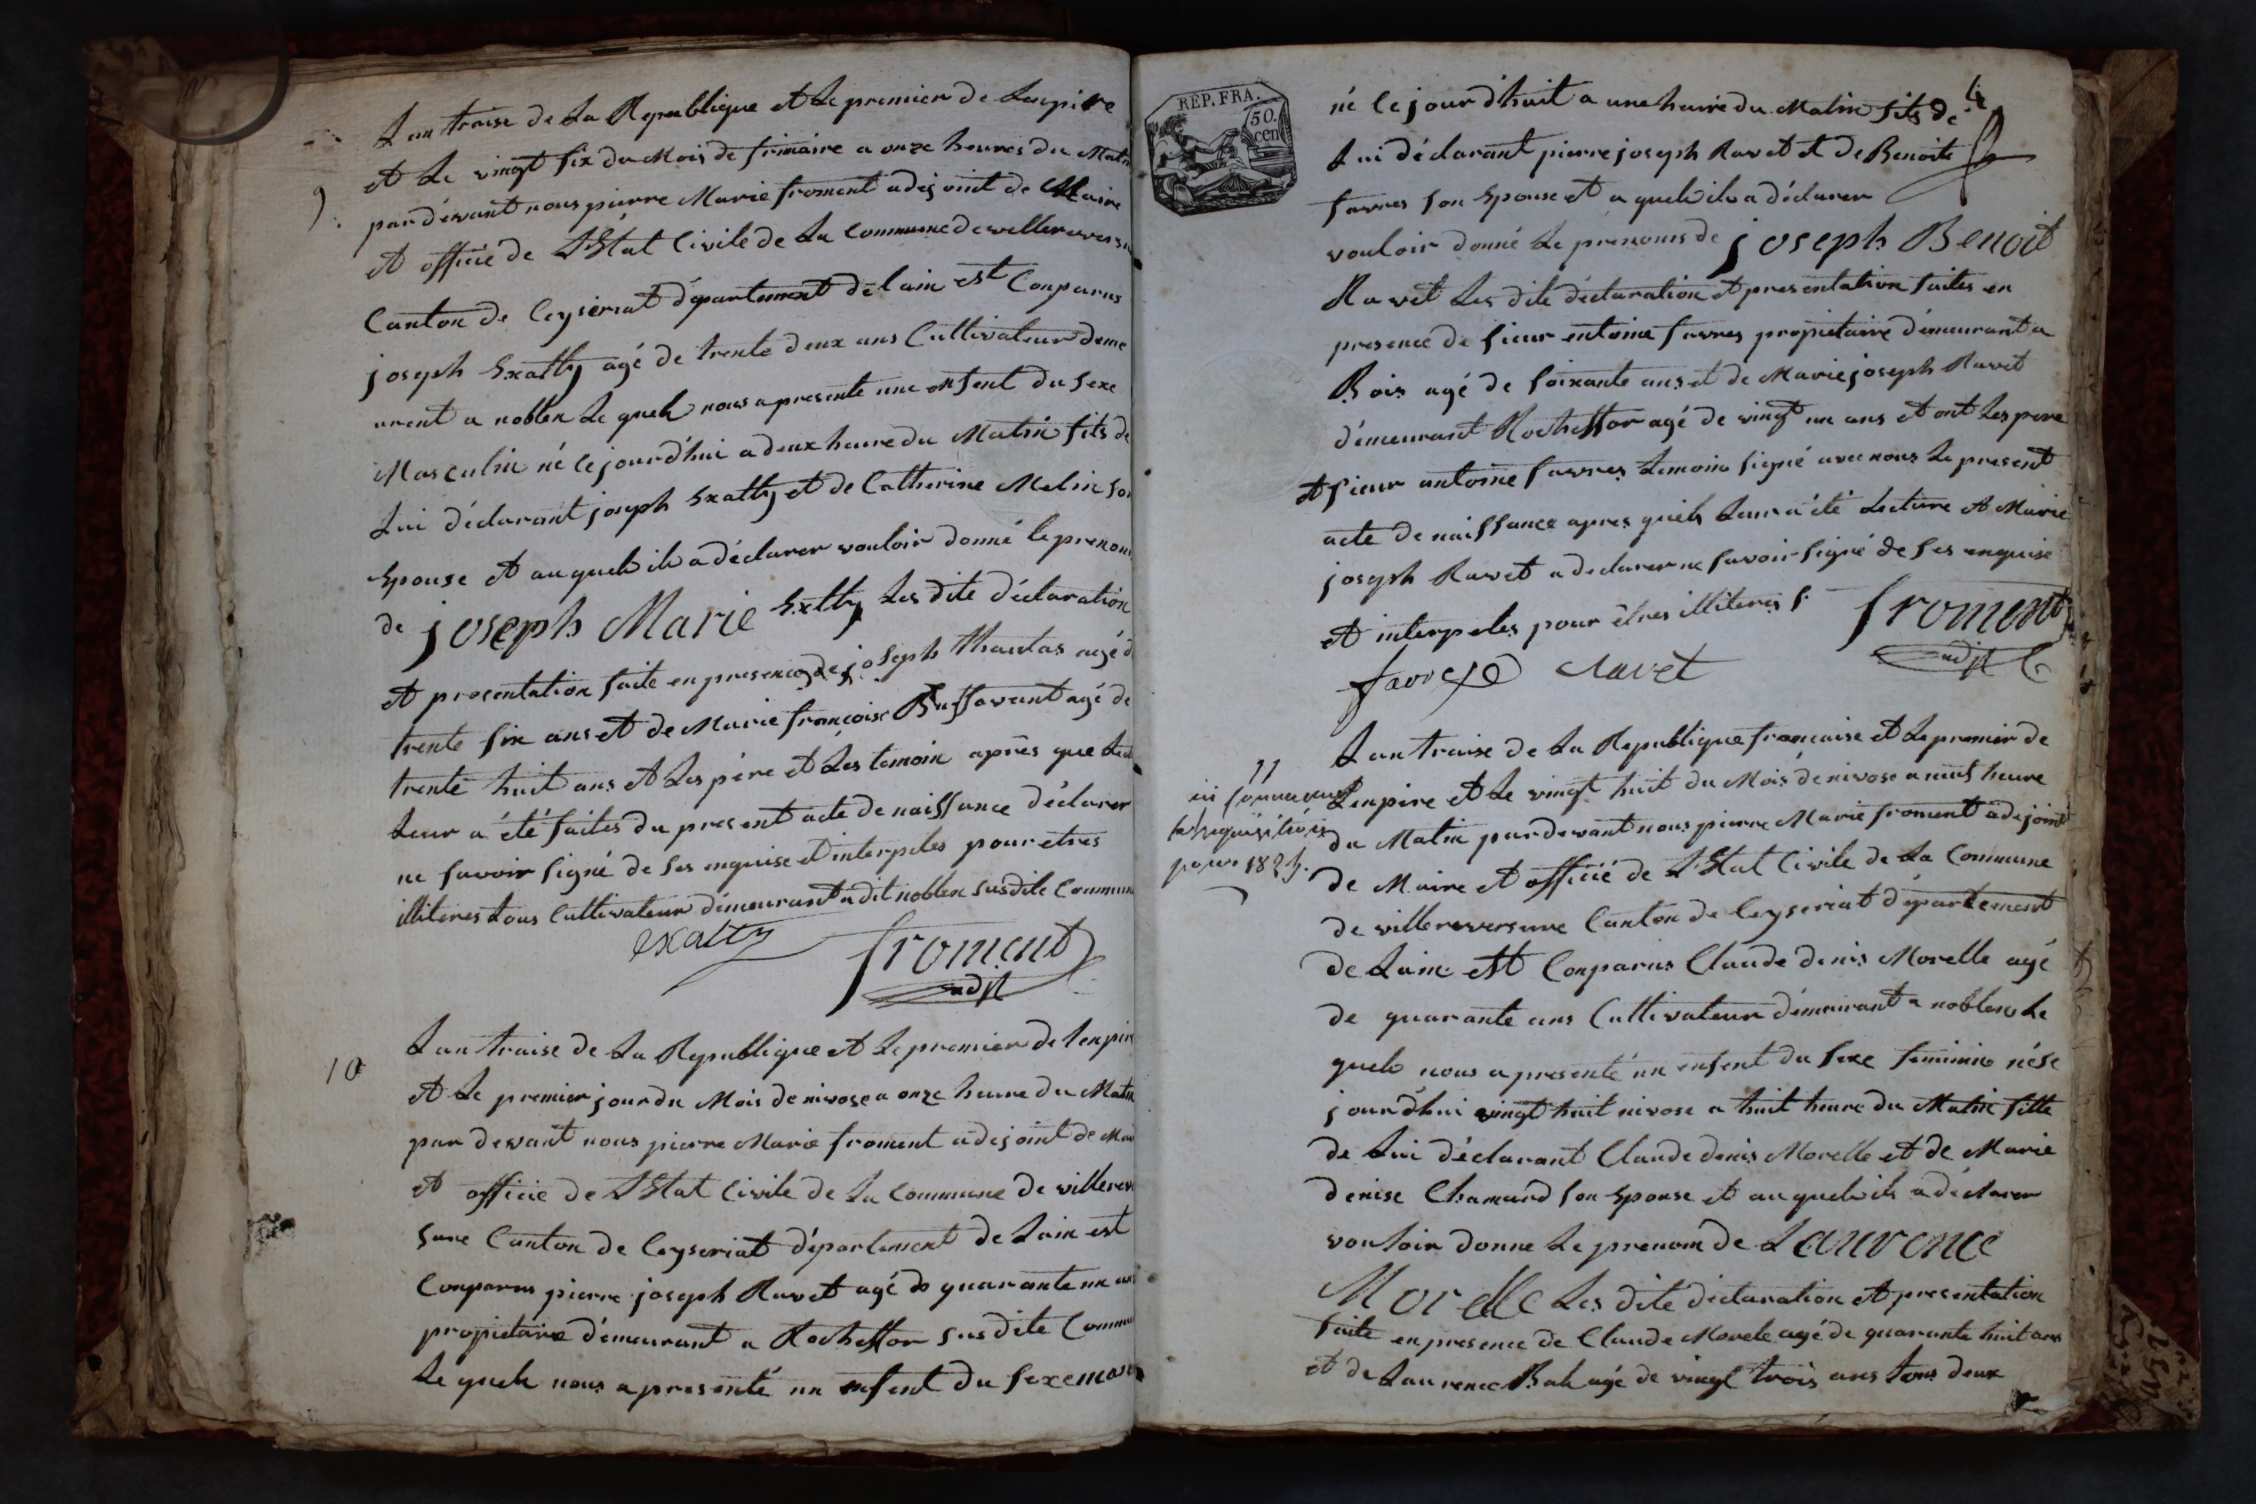 9
Lan traise de La Republique et Le premier de Lenpire
et Le vingt six du Mois de frimaire a onze heures du Matin
par dévant nous pierre Marie froment adejoint de Maire
et officié de L'Etat Civile de La Commune de villerevers
Canton de Ceyseriat département de lain est Conparus
joseph Exalty agé de trente deux ans Cultivateur deme
urent a noblen Le quel nous a presenté une enfent du sexe
Masculin né ce jourd'hui a deux heure du Matin fils de
Lui déclarant joseph Exalty et de Catherine Melin son
Epouse et au quel il a déclarer vouloir donné le prenom
de joseph Marie Exalty Les dite déclaration
et presentation faite en presence de joseph
trente six ans et de Marie françoise Buffavant agé de
trente huit ans et Les pére et Les temoin aprés que Lect
Leur a été faites du present acte de naissance déclarer
ne savoir signé de ses enquise et interpeles pour etres
illiteres tous Cultivateur démeurant a dit noblen susdite Commune
exalty froment
adjt
10
Lan traise de La Republique et Le premier de Lenpire
et Le premier jour du Mois de nivose a onze heure du Matin
par devant nous pierre Marie froment adejoint de Mai
et officié de L'Etat Civile de La Commune de villerev
sure Canton de Ceyseriat département de Lain est
Conparus pierre joseph Ravet agé de quarante un ans
propietaire démeurant a Rocheffor susdite Commu
Le quel nous a presenté un enfent du sexe mascu
REP. FRA.
50.
cen
4
né ce jour d'huit a une heure du Matin fils de
Lui déclarant pierre joseph Ravet et de Benoite
favres son Epouse et a quel il a déclarer
vouloir donné Le prenoms de joseph Benoit
Ravet Les dite déclaration et presentation faites en
presence de sieur entoine favres propietaire démeurant a
Bois agé de soixante ans et de Marie joseph Ravet
démeurant Rocheffor agé de vingt un ans et ont Les pere
et sieur antoine favres temoin signé avec nous Le present
acte de naissance apres quels Leur a été Lecture et Marie
joseph Ravet a declarer ne savoir signé de ses enquise
et interpeles pour êtres illiteres
froment
favre Ravet adjt
11
ici commencent
les requisitions
pour 1825.
Lan traise de La Republique française et Le premier de
Lenpire et Le vingt huit du Mois de nivose a neuf heure
du Matin par devant nous pierre Marie froment adejoint
de Maire et officié de L'Etat Civile de La Commune
de villereversure Canton de Ceyseriat département
de Lain est Conparus Claude denis Morelle agé
de quarante ans Cultivateur démeurant a noblen Le
quel nous a presenté un enfent du sexe feminine né se
jourd'hui vingt huit nivose a huit heure du Matin fille
de Lui déclarant Claude denis Morelle et de Marie
denise Chanard son Epouse et au quel il a déclarer
vouloir donne Le prenom de Laurence
Morelle Les dite déclaration et presentation
faite en presence de Claude Morele agé de quarante huit ans
et de Laurence Bah agé de vingt trois ans tous deux